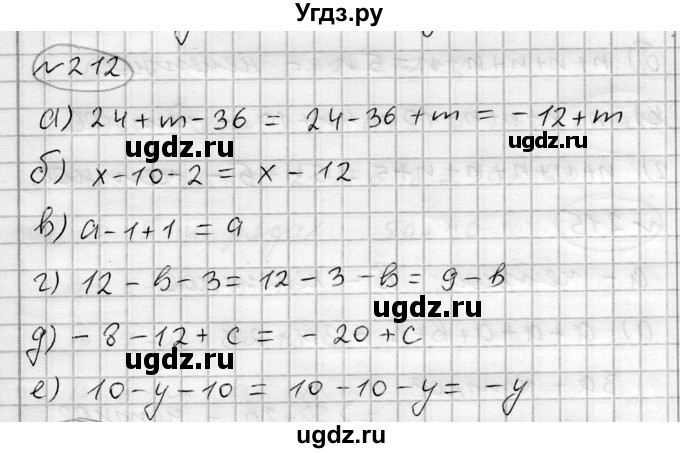 Угдз.ру
№212
а) 24+m-36 = 24-36+m = -12+m
ugdz.ru ugdz.ru
б) x-10-2 = x-12
в) a-1+1 = a
г) 12-в-3 = 12-3-в = 9-в
ugdz.ru
д) -8-12+c = -20+c
ugdz.ru
е) 10-y-10 = 10-10-y = -y
ugdz.ru